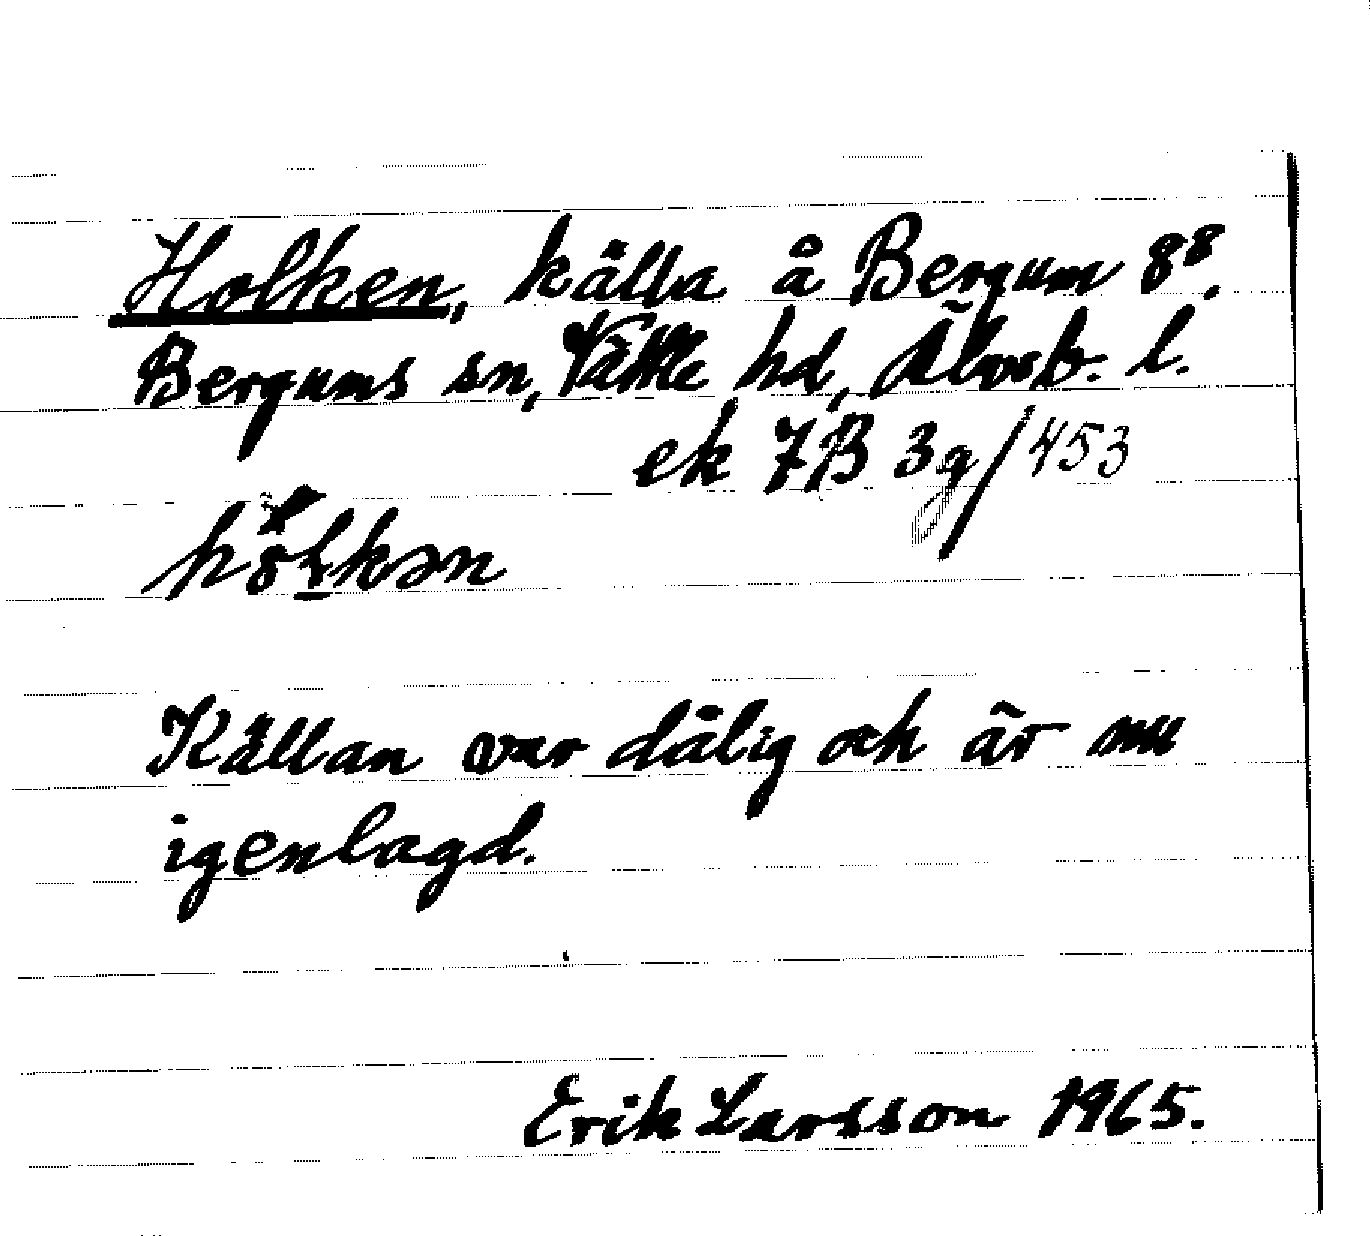 Holken, källa å Bergum 8⁸.
Bergums sn, Vättle hd, Älvsb. l.
ek 7B 3g/453
hölkən
Källan var dålig och är nu
igenlagd.
Erik Larsson 1965.